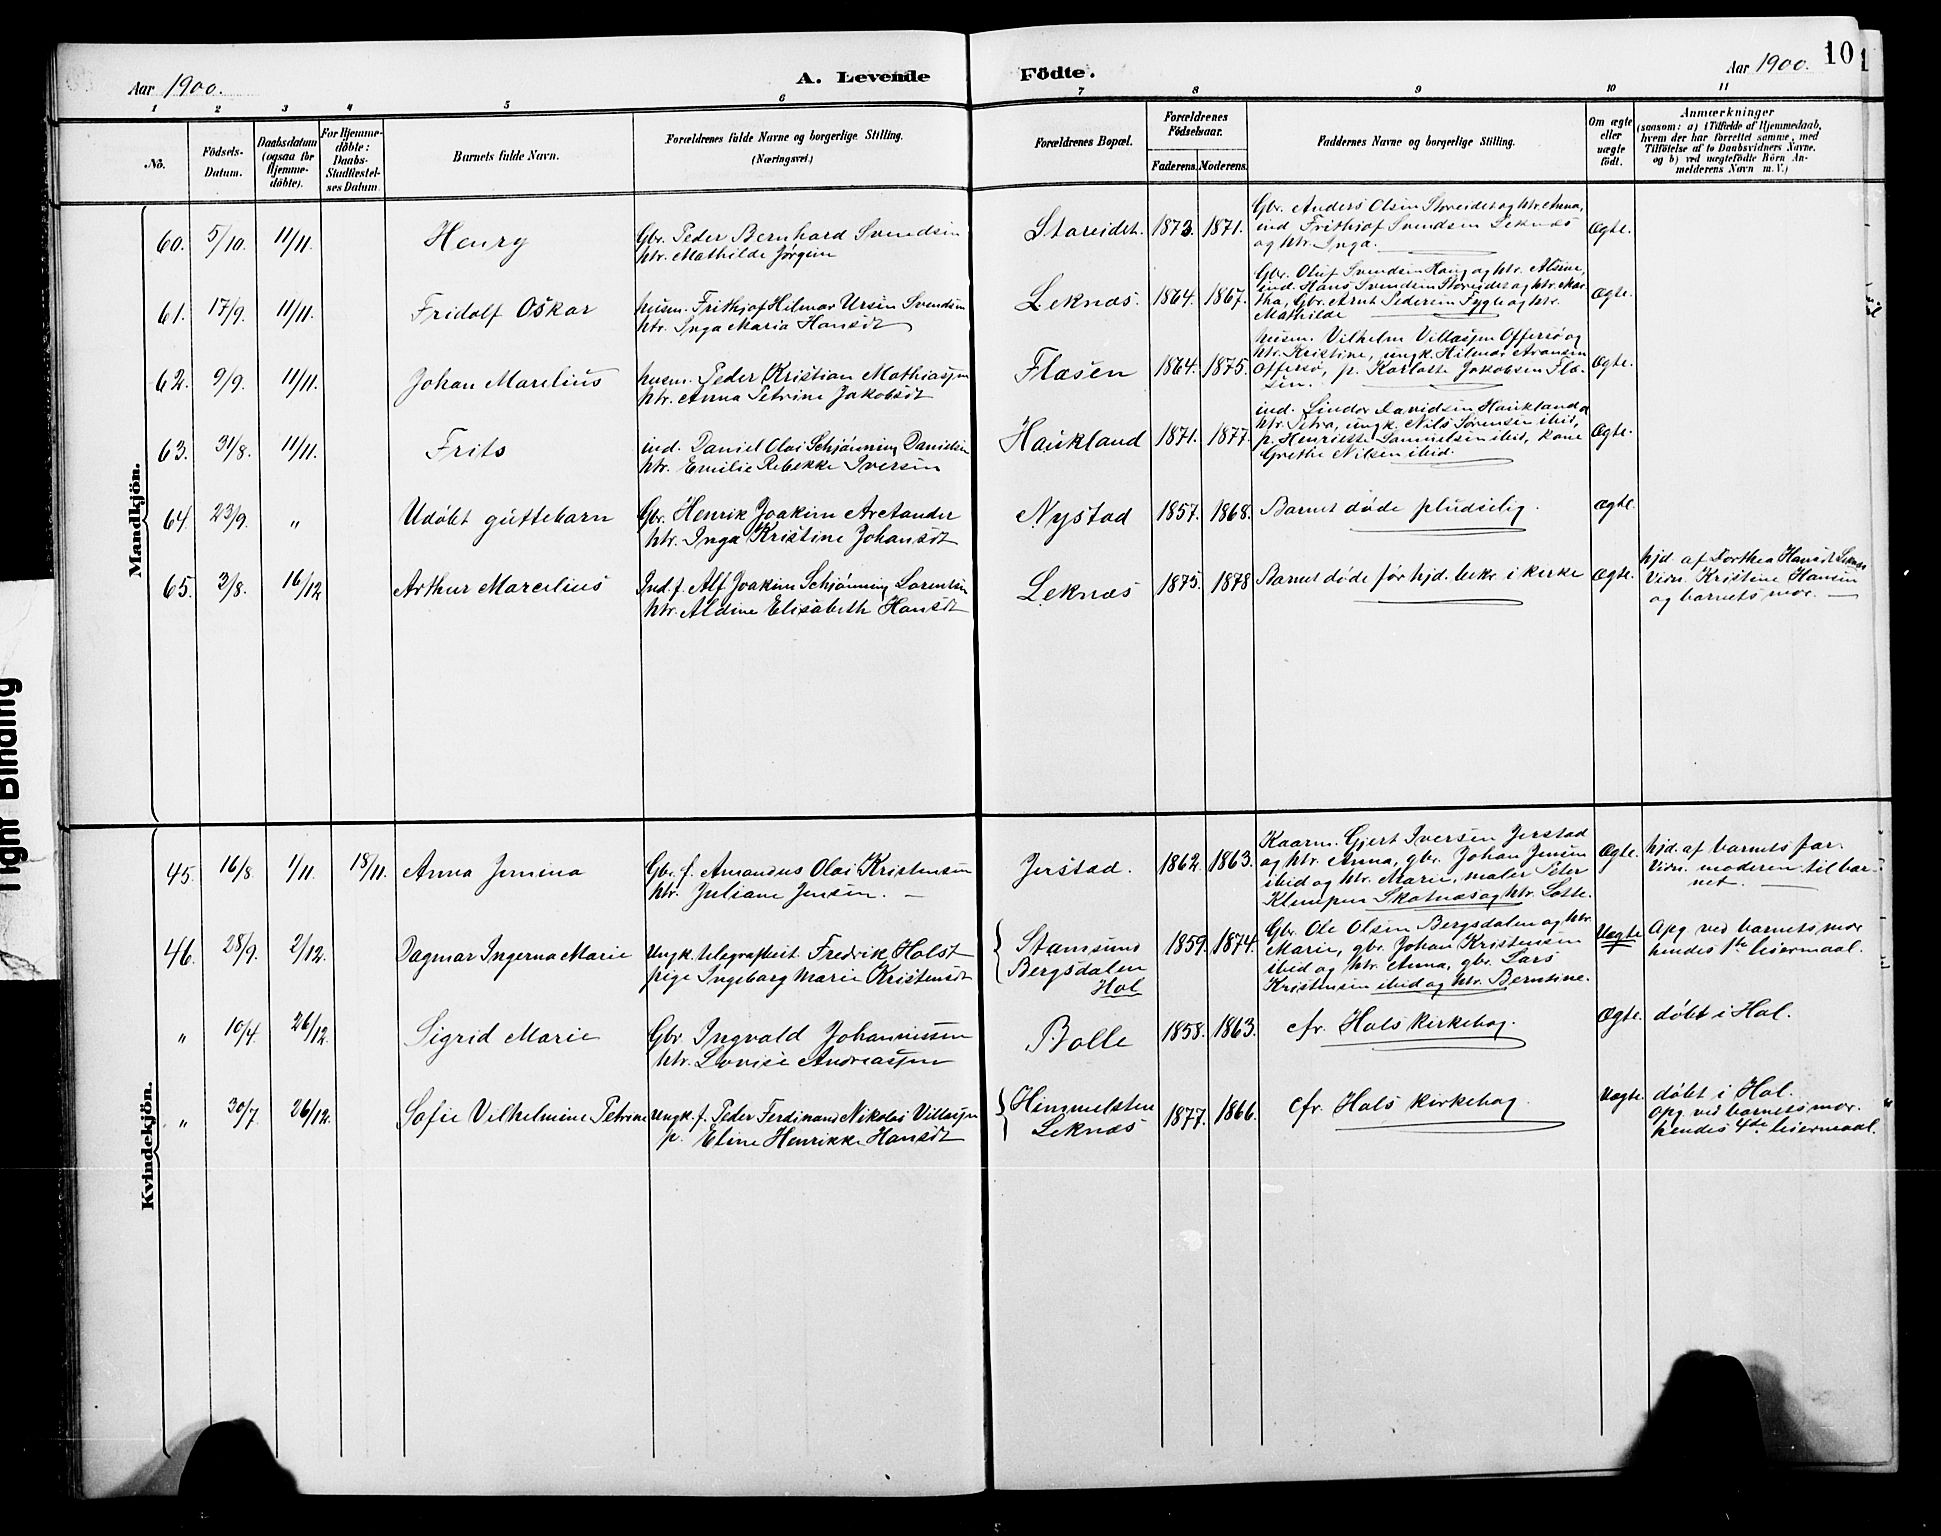 Aar 1900.
A. Levende Födte.
Aar 1900.
10
1 2 3 4 5 6 7 8 9 10 11
Nö.
Födsels-Datum.
Daabsdatum (ogsaa for Hjemme-döbte).
For Hjemme-döbte: Daabs-Stadfæstel-ses Datum.
Barnets fulde Navn.
Forældrenes fulde Navne og borgerlige Stilling. (Næringsvei.)
Forældrenes Bopæl.
Forældrenes Födselsaar.
Faderens. Moderens.
Faddernes Navne og borgerlige Stilling.
Om ægte eller uægte födt.
Anmærkninger
(saasom: a) i Tilfælde af Hjemmedaab,
hvem der har forrettet samme, med
Tilföielse af to Daabsvidners Navne,
og b) ved uægtefödte Börn An-
melderens Navn m. V.)
Mandkjön.
60. 5/10. 11/11. Henry
Gbr. Peder Bernhard Svendsen
htr. Mathilde Jørgine
Storeidet. 1873. 1871.
Gbr. Anders Olsen Storeidet og htr. Anna,
ind. Frithjof Svendsen Leknæs
og htr. Inga.
Ægte.
61. 17/9. 11/11. Fridolf Oskar
husm. Frithjof Hilmar Ursin Svendsen
htr. Inga Maria Hansdt
Leknæs. 1864. 1867.
Gbr. Oluf Svendsen Haug og htr. Alsine,
ind. Hans Svendsen Storeidet og htr. Mar-
tha, Gbr. Arnt Pedersen Fygle og htr.
Mathilde
Ægte.
62. 9/9. 11/11. Johan Marelius
husm. Peder Kristian Mathiassen
htr. Anna Petrine Jakobsdt
Flæsen 1864. 1875.
husm. Vilhelm Villassen Offersø og
htr. Kristine, ungk. Hilmar Aronsen
Offersø, p. Karlotte Jakobsen Flæ-
sen.
Ægte.
63. 31/8. 11/11. Frits
ind. Daniel Olai Schjønning Danielsen
htr. Emilie Rebekke Iversen
Haukland 1871. 1877.
ind. Sindor Davidsen Haukland og
htr. Petra, ungk. Nils Sørensen ibid,
p. Henriette Samuelsen ibid, kone
Grethe Nilsen ibid.
Ægte.
64. 23/9. " Udøbt guttebarn
Gbr. Henrik Joakim Arctander
htr. Inga Kristine Johansdt
Nystad 1857. 1868.
Barnet døde pludselig.
Ægte.
65. 3/8. 16/12 Arthur Marcelius
Ind. f. Alf Joakim Schjønning Lorentsen
htr. Aldine Elisabeth Hansdt
Leknæs 1875. 1878
Barnet døde før hjd. bekr i kirke
Ægte.
hjd. af Dorthea Hansdt Leknæs
Vidn. Kristine Hansen
og barnets mor.
Kvindekjön.
45. 16/8. 1/11. 18/11. Anna Jemina
Gbr. f. Amandus Olai Kristensen
htr. Juliane Jensen.
Jerstad. 1862. 1863.
Kaarm. Gjert Iversen Jerstad
og htr. Anna, gbr. Johan Jensen
ibid og htr. Marie, maler Peter
Klempen Skotnæs og htr. Lotte.
Ægte.
hjd. af barnets far.
Vidn. moderen til bar-
net.
46. 28/9. 2/12. Dagmar Ingerna Marie
Ungk. telegrafbest. Fredrik Holst
pige Ingeborg Marie Kristensdt
Stamsund
Bergsdalen
Hol
1859. 1874.
Gbr. Ole Olsen Bergsdalen og htr.
Marie, gbr. Johan Kristensen
ibid og htr. Anna, gbr. Lars
Kristensen ibid og htr. Berntine.
Uægte
Opg. ved barnets mor
hendes 1ste leiermaal.
" 10/4. 26/12. Sigrid Marie
Gbr. Ingvald Johannessen
htr. Lovise Andreassen
Bolle 1858. 1863.
cfr. Hols kirkebog.
Ægte.
døbt i Hol.
" 30/7. 26/12. Sofie Vilhelmine Petrine
Ungk. f. Peder Ferdinand Nikolai Villassen
p. Eline Henrikke Hansdt
Himmelsten
Leknæs
1877. 1866.
cfr. Hols kirkebog.
Uægte
døbt i Hol.
Opg. ved barnets mor.
hendes 4de leiermaal.
Tight Binding